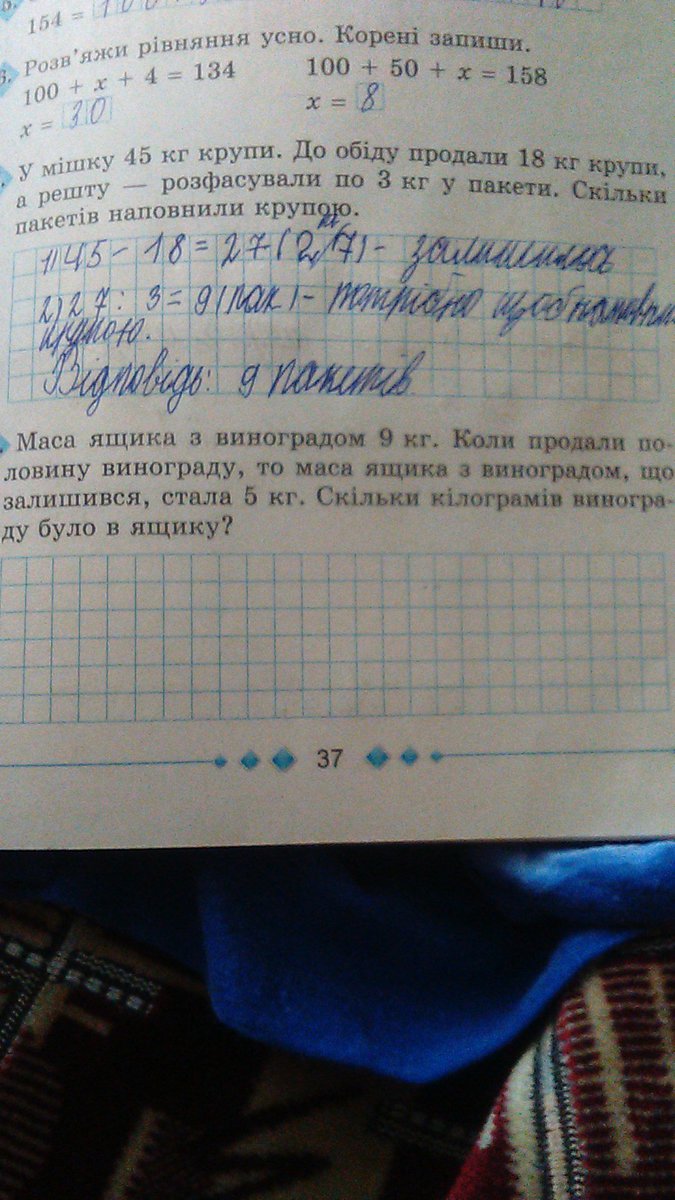 154 = 100
6. Розв'яжи рівняння усно. Корені запиши.
100 + x + 4 = 134 100 + 50 + x = 158
x = 30 x = 8
У мішку 45 кг крупи. До обіду продали 18 кг крупи,
а решту — розфасували по 3 кг у пакети. Скільки
пакетів наповнили крупою.
1) 45 - 18 = 27 ( кг ) - залишилось
2) 27 : 3 = 9 (пак) - потрібно щоб
крупою.
Відповідь: 9 пакетів
Маса ящика з виноградом 9 кг. Коли продали по-
ловину винограду, то маса ящика з виноградом, що
залишився, стала 5 кг. Скільки кілограмів виногра-
ду було в ящику?
37